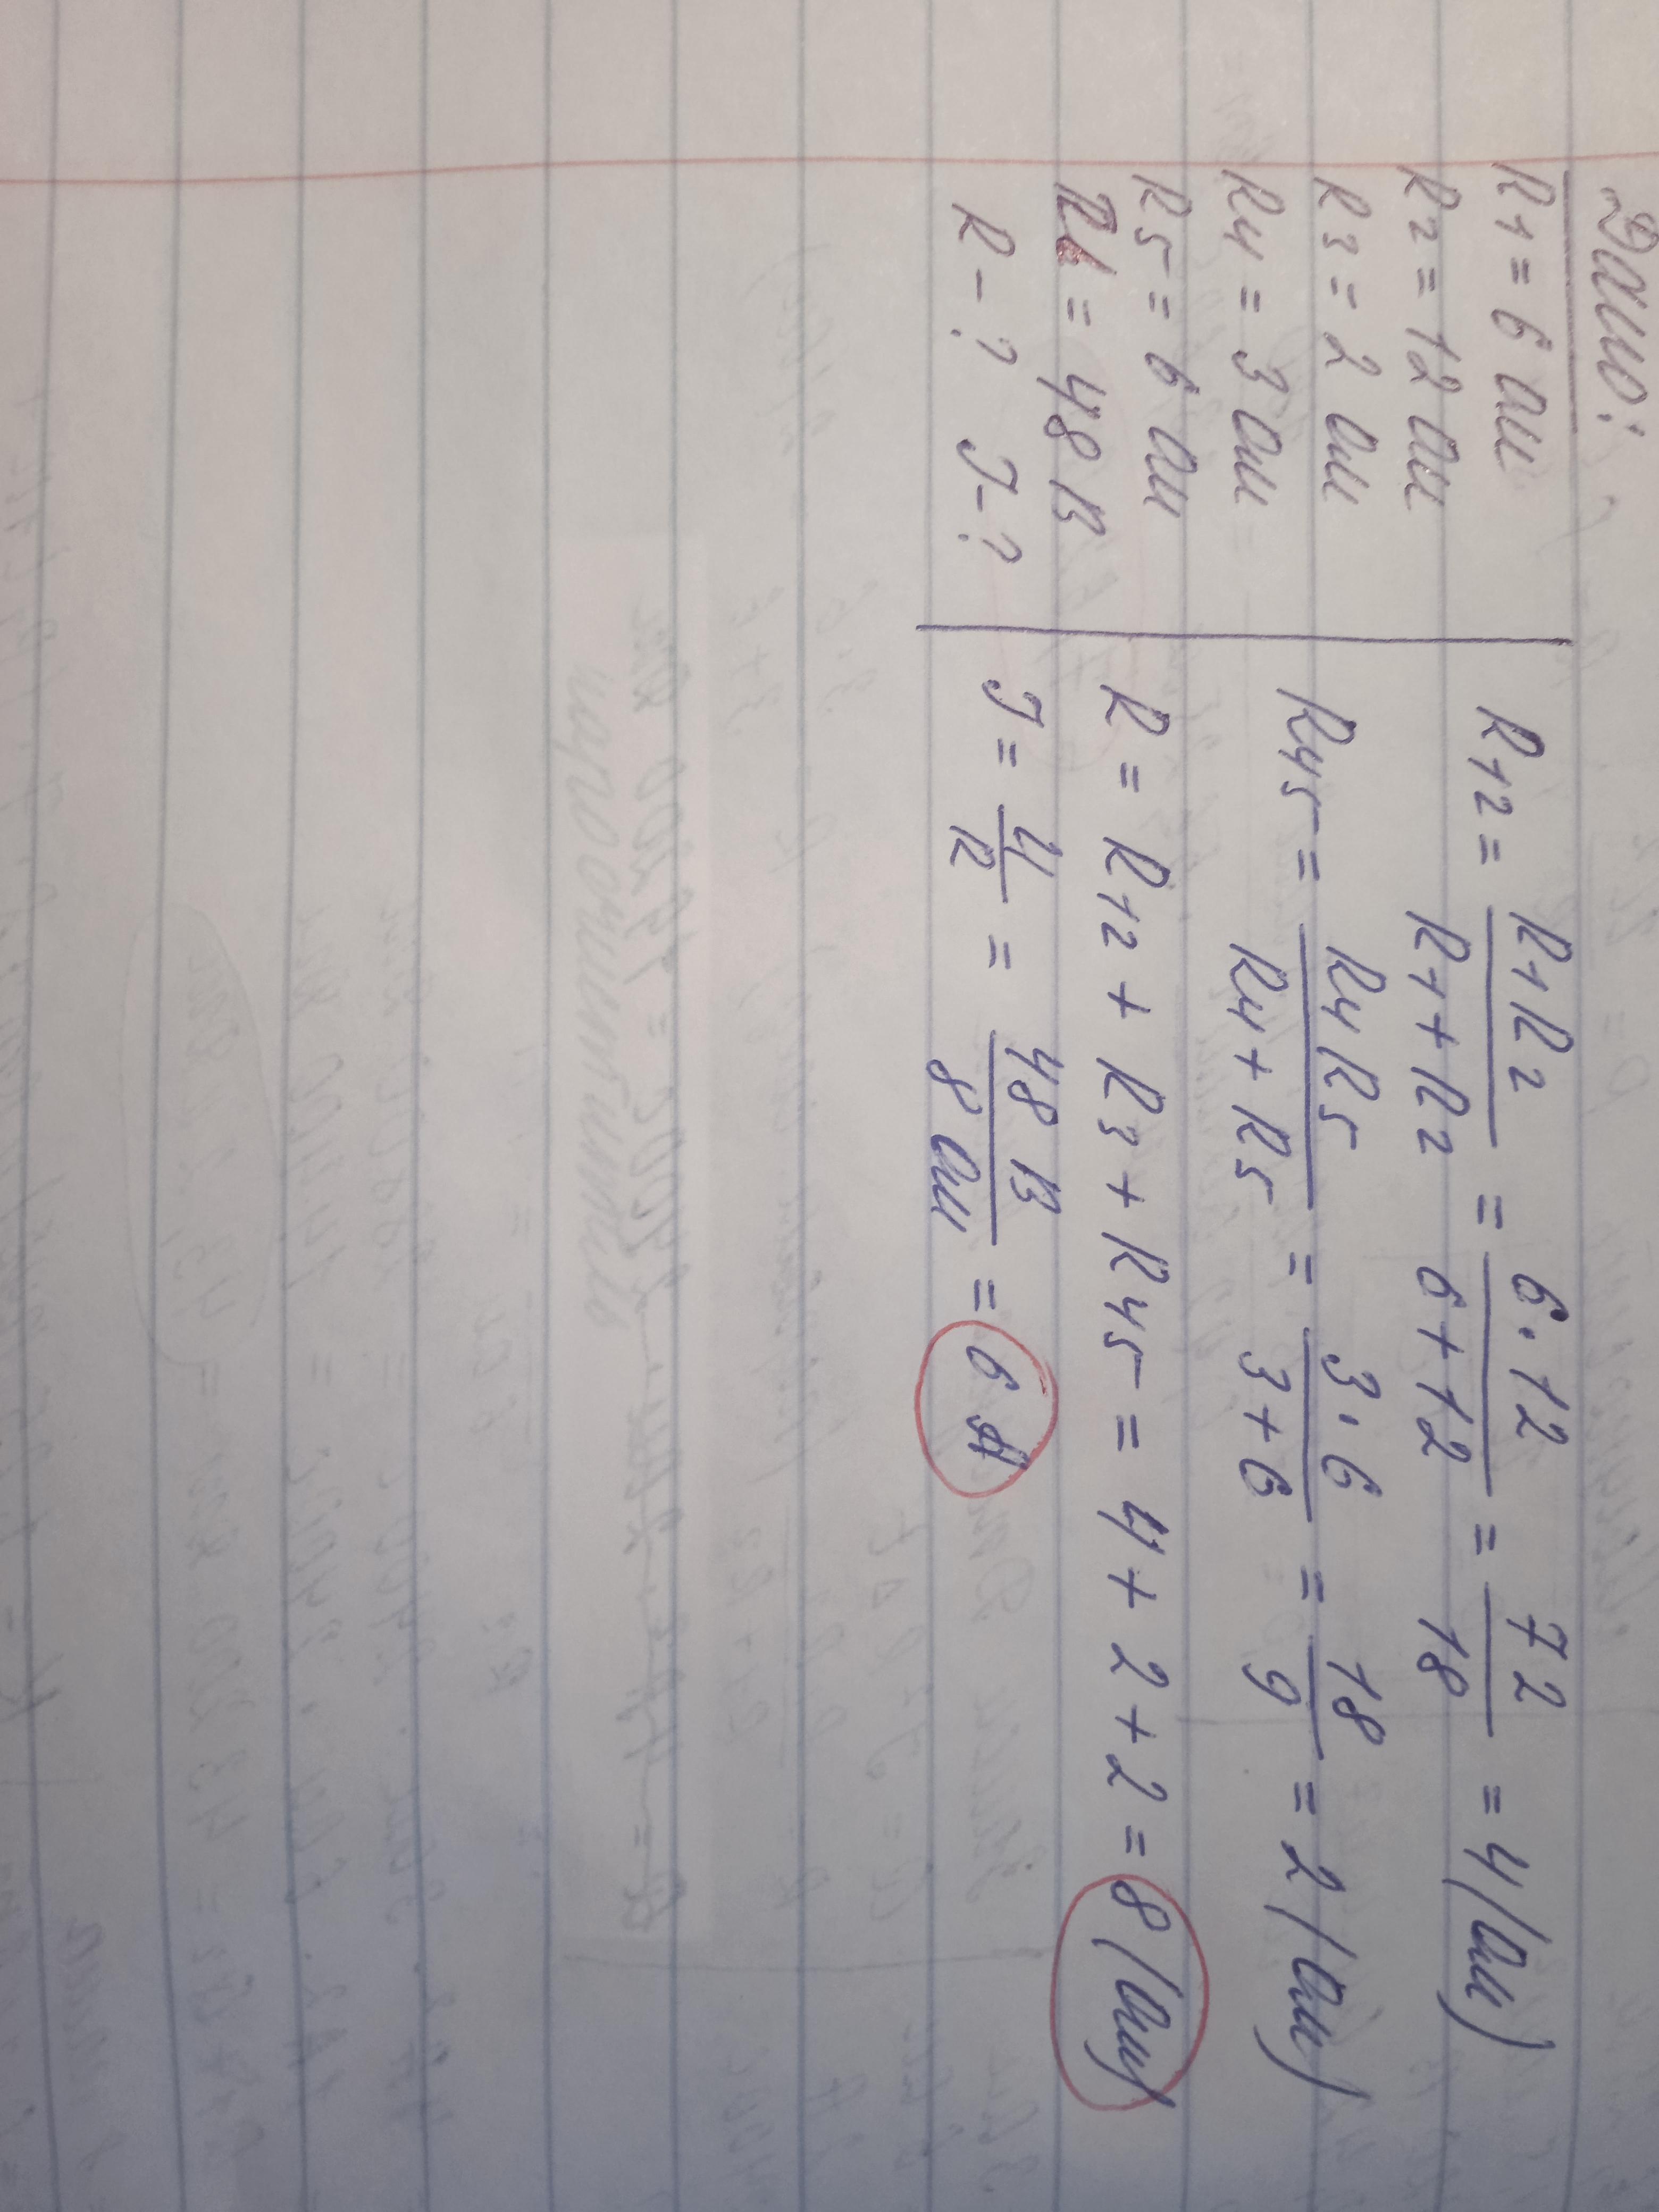 Дано:
R1 = 6 Ом
R2 = 12 Ом
R3 = 2 Ом
R4 = 3 Ом
R5 = 6 Ом
= 48 В
R - ? I - ?
R12 = R1R2 / R1 + R2 = 6 · 12 / 6 + 12 = 72 / 18 = 4 (Ом)
R45 = R4R5 / R4 + R5 = 3 · 6 / 3 + 6 = 18 / 9 = 2 (Ом)
R = R12 + R3 + R45 = 4 + 2 + 2 = 8 (Ом)
I = U / R = 48 В / 8 Ом = 6 А